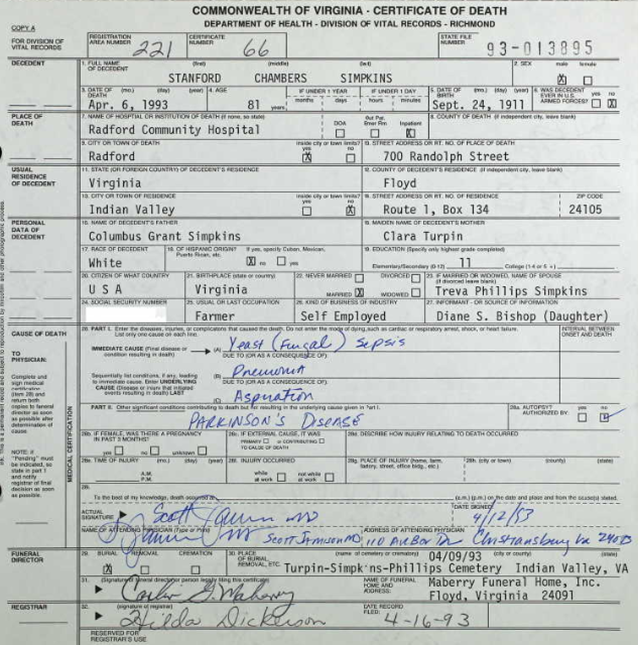 COMMONWEALTH OF VIRGINIA - CERTIFICATE OF DEATH
DEPARTMENT OF HEALTH - DIVISION OF VITAL RECORDS - RICHMOND
COPY A
FOR DIVISION OF VITAL RECORDS
REGISTRATION AREA NUMBER 221 CERTIFICATE NUMBER 66 STATE FILE NUMBER 93-013895
DECEDENT
1. FULL NAME OF DECEDENT (first) (middle) (last) 2. SEX male female
STANFORD CHAMBERS SIMPKINS X
3. DATE OF DEATH (mo.) (day) (year) 4. AGE IF UNDER 1 YEAR IF UNDER 1 DAY 5. DATE OF BIRTH (mo.) (day) (year) 6. WAS DECEDENT EVER IN U.S. ARMED FORCES? yes no
Apr. 6, 1993 81 years months days hours minutes Sept. 24, 1911 X
PLACE OF DEATH
7. NAME OF HOSPITAL OR INSTITUTION OF DEATH (if none, so state) DOA Out Pat. Emer Rm Inpatient 8. COUNTY OF DEATH (if independent city, leave blank)
Radford Community Hospital X
9. CITY OR TOWN OF DEATH inside city or town limits? yes no 10. STREET ADDRESS OR RT. NO. OF PLACE OF DEATH
Radford X 700 Randolph Street
USUAL RESIDENCE OF DECEDENT
11. STATE (OR FOREIGN COUNTRY) OF DECEDENT'S RESIDENCE 12. COUNTY OF DECEDENT'S RESIDENCE (if independent city, leave blank)
Virginia Floyd
13. CITY OR TOWN OF RESIDENCE inside city or town limits? yes no STREET ADDRESS OR RT. NO. OF RESIDENCE ZIP CODE
Indian Valley X Route 1, Box 134 24105
PERSONAL DATA OF DECEDENT
15. NAME OF DECEDENT'S FATHER MAIDEN NAME OF DECEDENT'S MOTHER
Columbus Grant Simpkins Clara Turpin
17. RACE OF DECEDENT 18. OF HISPANIC ORIGIN? If yes, specify Cuban, Mexican, Puerto Rican, etc. 19. EDUCATION (Specify only highest grade completed)
White X no yes Elementary/Secondary (0-12) 11 College (1-4 or 5 + )
20. CITIZEN OF WHAT COUNTRY 21. BIRTHPLACE (state or country) 22. NEVER MARRIED DIVORCED 23. IF MARRIED OR WIDOWED, NAME OF SPOUSE (if divorced leave blank)
U S A Virginia MARRIED X WIDOWED Treva Phillips Simpkins
24. SOCIAL SECURITY NUMBER 25. USUAL OR LAST OCCUPATION 26. KIND OF BUSINESS OR INDUSTRY 27. INFORMANT - OR SOURCE OF INFORMATION
Farmer Self Employed Diane S. Bishop (Daughter)
CAUSE OF DEATH
28. PART I. Enter the diseases, injuries, or complications that caused the death. Do not enter the mode of dying, such as cardiac or respiratory arrest, shock, or heart failure. List only one cause on each line. INTERVAL BETWEEN ONSET AND DEATH
TO PHYSICIAN:
Complete and sign medical certification (item 28) and return both copies to funeral director as soon as possible after determination of cause
NOTE: If "Pending" must be indicated, so state in part 1 and notify registrar of final decision as soon as possible.
MEDICAL CERTIFICATION
IMMEDIATE CAUSE (Final disease or condition resulting in death) (A) Yeast (Fungal) Sepsis
DUE TO (OR AS A CONSEQUENCE OF):
Sequentially list conditions, if any, leading to immediate cause. Enter UNDERLYING CAUSE (Disease or injury that initiated events resulting in death) LAST (B) Pneumonia
DUE TO (OR AS A CONSEQUENCE OF):
(C) Aspiration
PART II. Other significant conditions contributing to death but not resulting in the underlying cause given in Part I. 28a. AUTOPSY AUTHORIZED BY: yes no
PARKINSON'S DISEASE
28b. IF FEMALE, WAS THERE A PREGNANCY IN PAST 3 MONTHS? yes no unknown 28c. IF EXTERNAL CAUSE, IT WAS PRIMARY or CONTRIBUTING TO CAUSE OF DEATH 28d. DESCRIBE HOW INJURY RELATING TO DEATH OCCURRED
28e. TIME OF INJURY (mo.) (day) (year) A.M. P.M. 28f. INJURY OCCURRED while at work not while at work 28g. PLACE OF INJURY (home, farm, factory, street, office bldg., etc.) 28h. (city or town) (county) (state)
To the best of my knowledge, death occurred (a.m.) (p.m.) on the date and place and from the cause(s) stated.
ACTUAL SIGNATURE DATE SIGNED 4/12/93
NAME OF ATTENDING PHYSICIAN (Type or Print) SCOTT JAMISON MD ADDRESS OF ATTENDING PHYSICIAN 110 Arbor Dr Christiansburg Va 24073
FUNERAL DIRECTOR
29. BURIAL REMOVAL CREMATION 30. PLACE OF BURIAL, REMOVAL, ETC. (name of cemetery or crematory) 04/09/93 (city or county) (state)
X Turpin-Simpkins-Phillips Cemetery Indian Valley, VA
31. (Signature of funeral director or person legally filing this certificate) NAME OF FUNERAL HOME AND ADDRESS: Maberry Funeral Home, Inc.
Floyd, Virginia 24091
REGISTRAR
32. (signature of registrar) Hilda Dickerson DATE RECORD FILED: 4-16-93
RESERVED FOR REGISTRAR'S USE